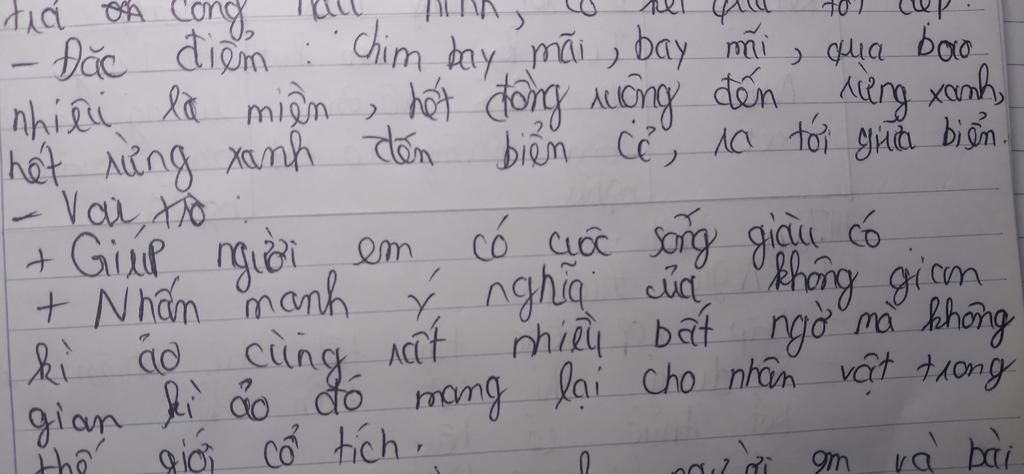 trả ơn công hậu hĩnh, có kết quả tốt đẹp.
- Đặc điểm : Chim bay mãi, bay mãi, qua bao
nhiêu là miền, hết đồng ruộng đến rừng xanh,
hết rừng xanh đến biển cả, ra tới giữa biển.
- Vai trò :
+ Giúp người em có cuộc sống giàu có
+ Nhấn manh ý nghĩa của không gian
kì ảo cùng rất nhiều bất ngờ mà không
gian kì ảo đó mang lại cho nhân vật trong
thế giới cổ tích.
người em và bài